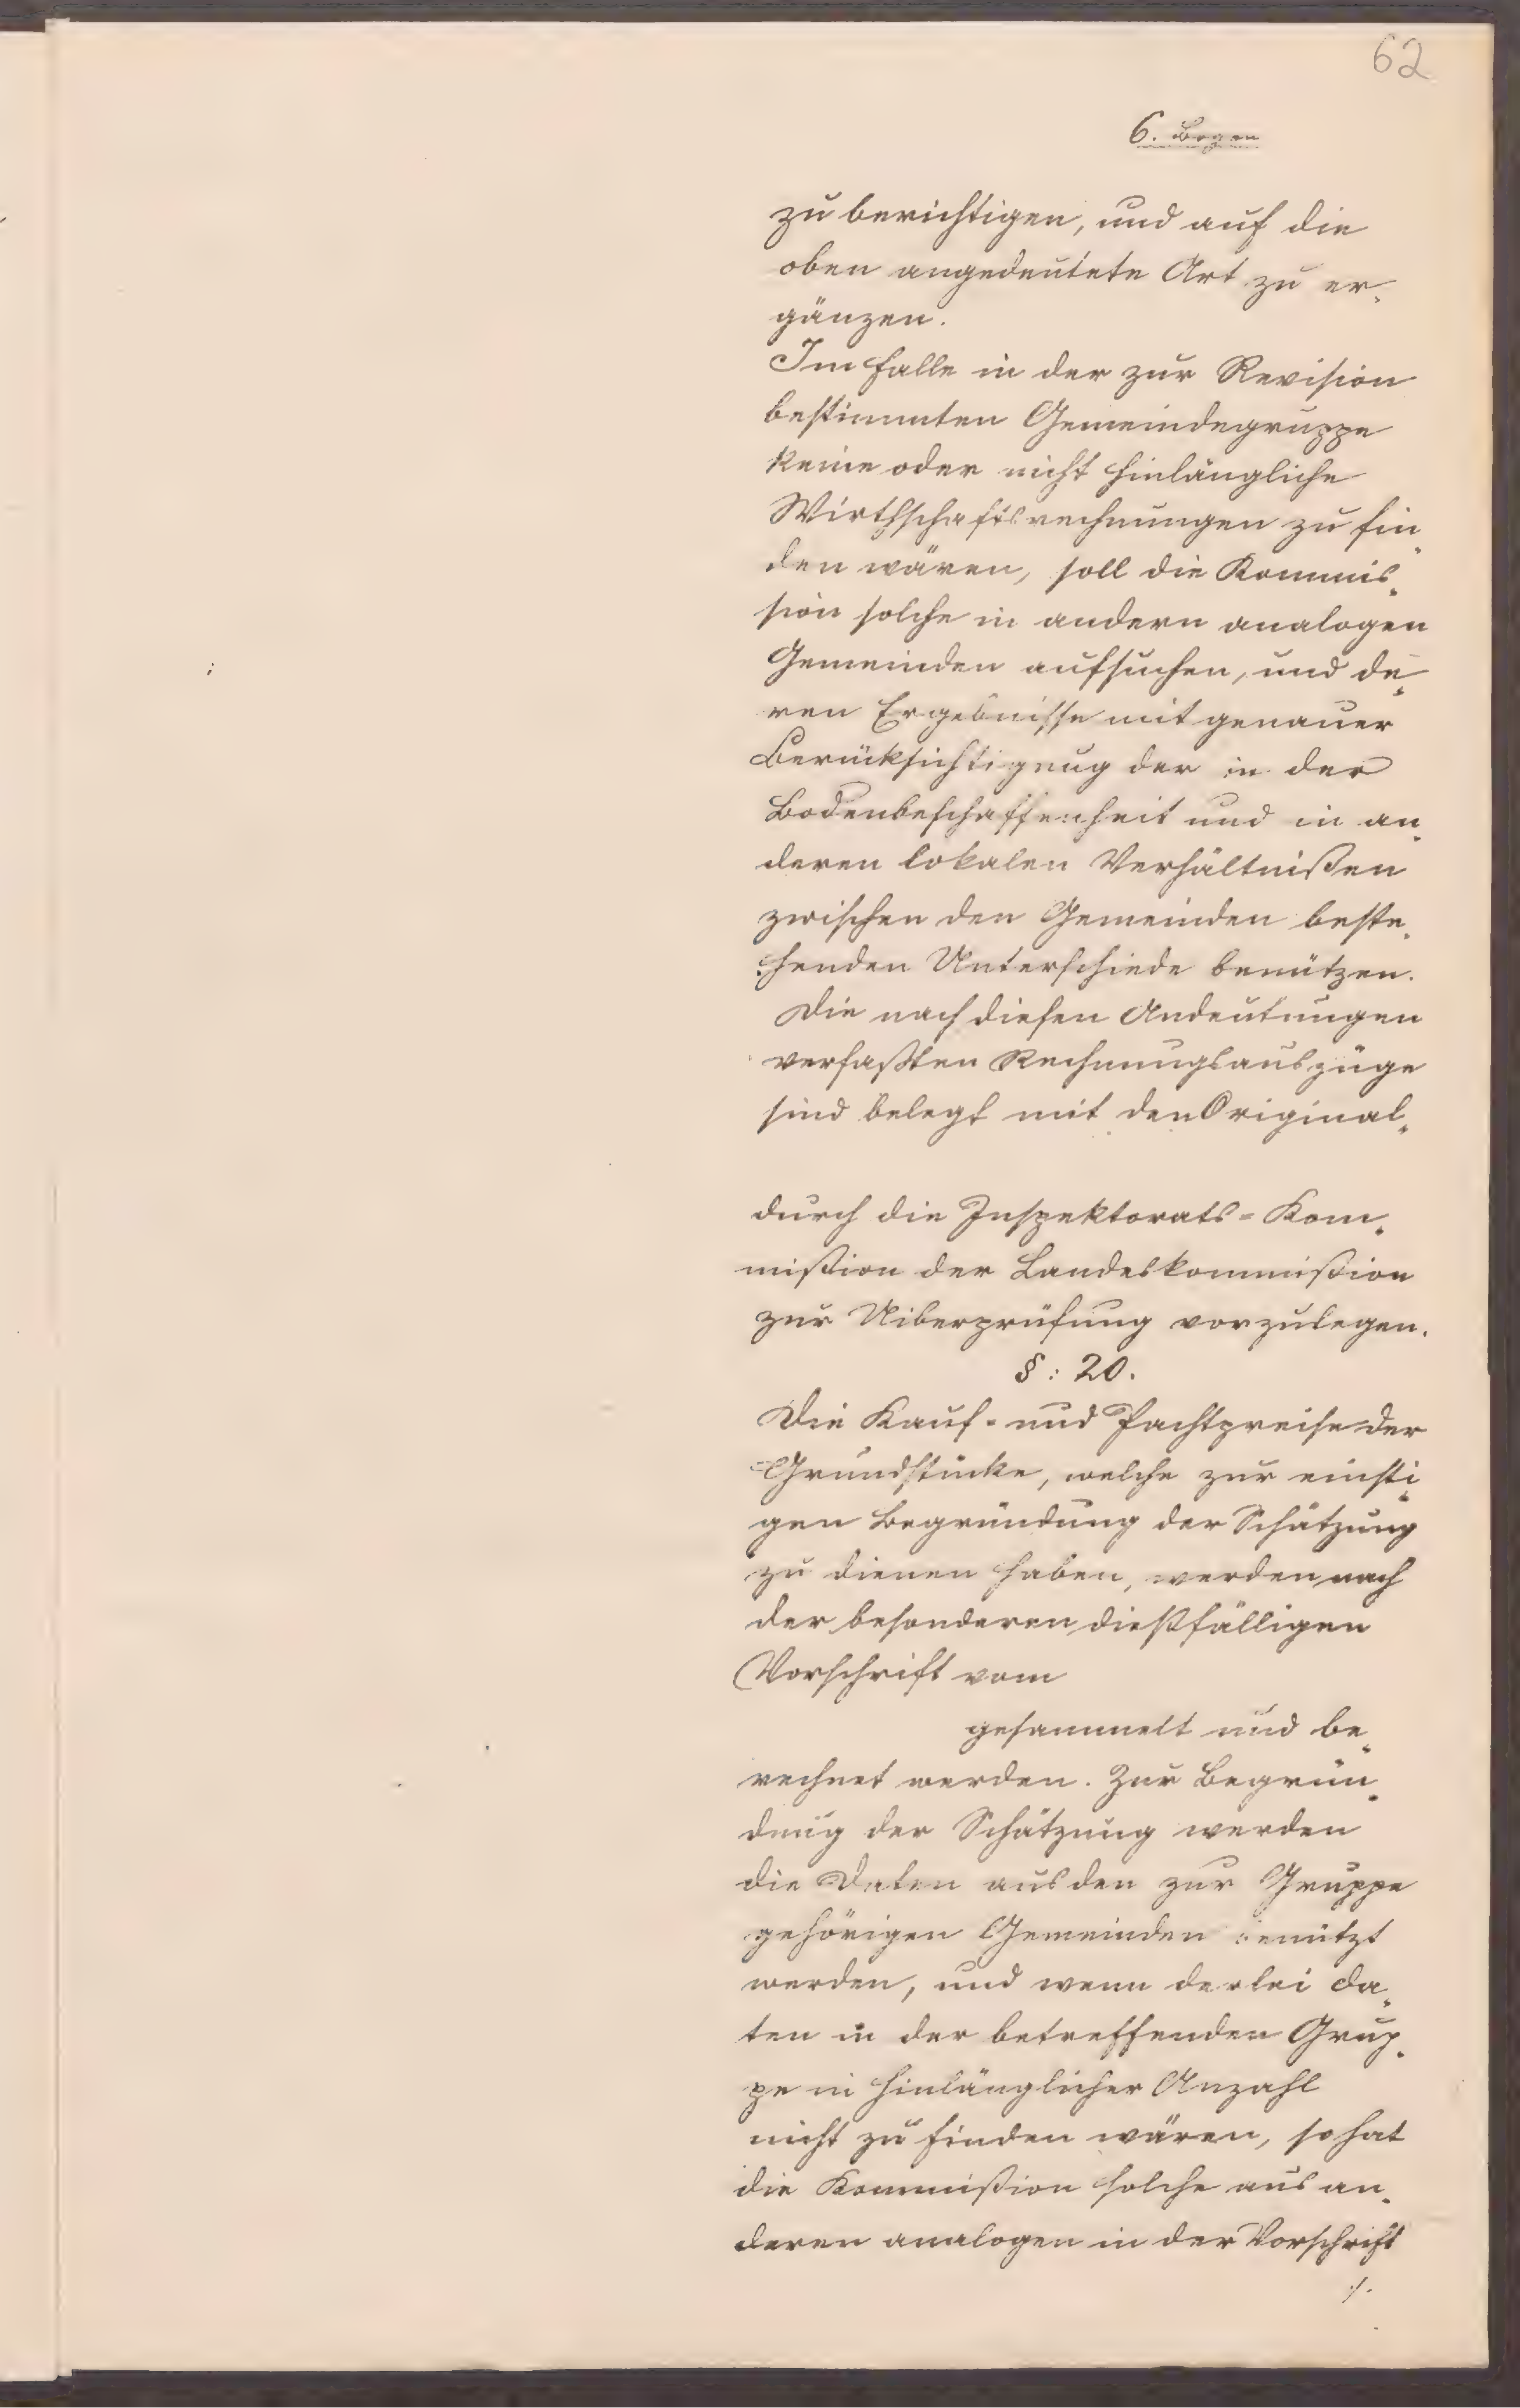 62
6. Bogen
zu berichtigen, und auf die
oben angedeutete Art zu er-
gänzen.
Im Falle in der zur Revision
bestimmten Gemeindegruppe
keine oder nicht hinlängliche
Wirthschaftsrechnungen zu fin-
den wären, soll die Kommis-
sion solche in andern analogen
Gemeinden aufsuchen, und de-
ren Ergebnisse mit genauer
Berücksichtigung der in der
Bodenbeschaffenheit und in an-
deren lokalen Verhältnißen
zwischen den Gemeinden beste-
henden Unterschiede benützen.
Die nach diesen Andeutungen
verfaßten Rechnungsauszüge
sind belegt mit den Original-
durch die Inspektorats-Kom-
mißion der Landeskommißion
zur Uiberprüfung vorzulegen.
§: 20.
Die Kauf- und Pachtpreise der
Grundstücke, welche zur einsti-
gen Begründung der Schätzung
zu dienen haben, werden nach
der besonderen dießfälligen
Vorschrift vom
gesammelt und be-
rechnet werden. Zur Begrün-
dung der Schätzung werden
die Daten aus den zur Gruppe
gehörigen Gemeinden benützt
werden, und wenn derlei Da-
ten in der betreffenden Grup-
pe in hinlänglicher Anzahl
nicht zu finden wären, so hat
die Kommißion solche aus an-
deren analogen in der Vorschrift
./.